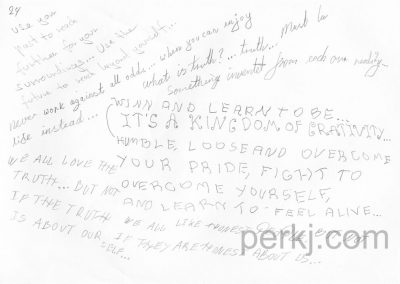 24
use you
past to reach
further for your
surroundings... use the
future to reach beyond yourself...
never work against all odds... when you can enjoy
life instead...
what is truth?... truth... must be
something invented from each own reality...
WINN AND LEARN TO BE...
IT'S A KINGDOM OF GRATIVITY...
HUMBLE, LOOSE AND OVERCOME
YOUR PRIDE, FIGHT TO
OVERCOME YOURSELF,
AND LEARN TO FEEL ALIVE...
WE ALL LOVE THE
TRUTH... BUT NOT
IF THE TRUTH
IS ABOUT OUR
SELF...
WE ALL LIKE HONEST PEOPLE BUT NOT
IF THEY ARE HONEST ABOUT US...
perkj.com